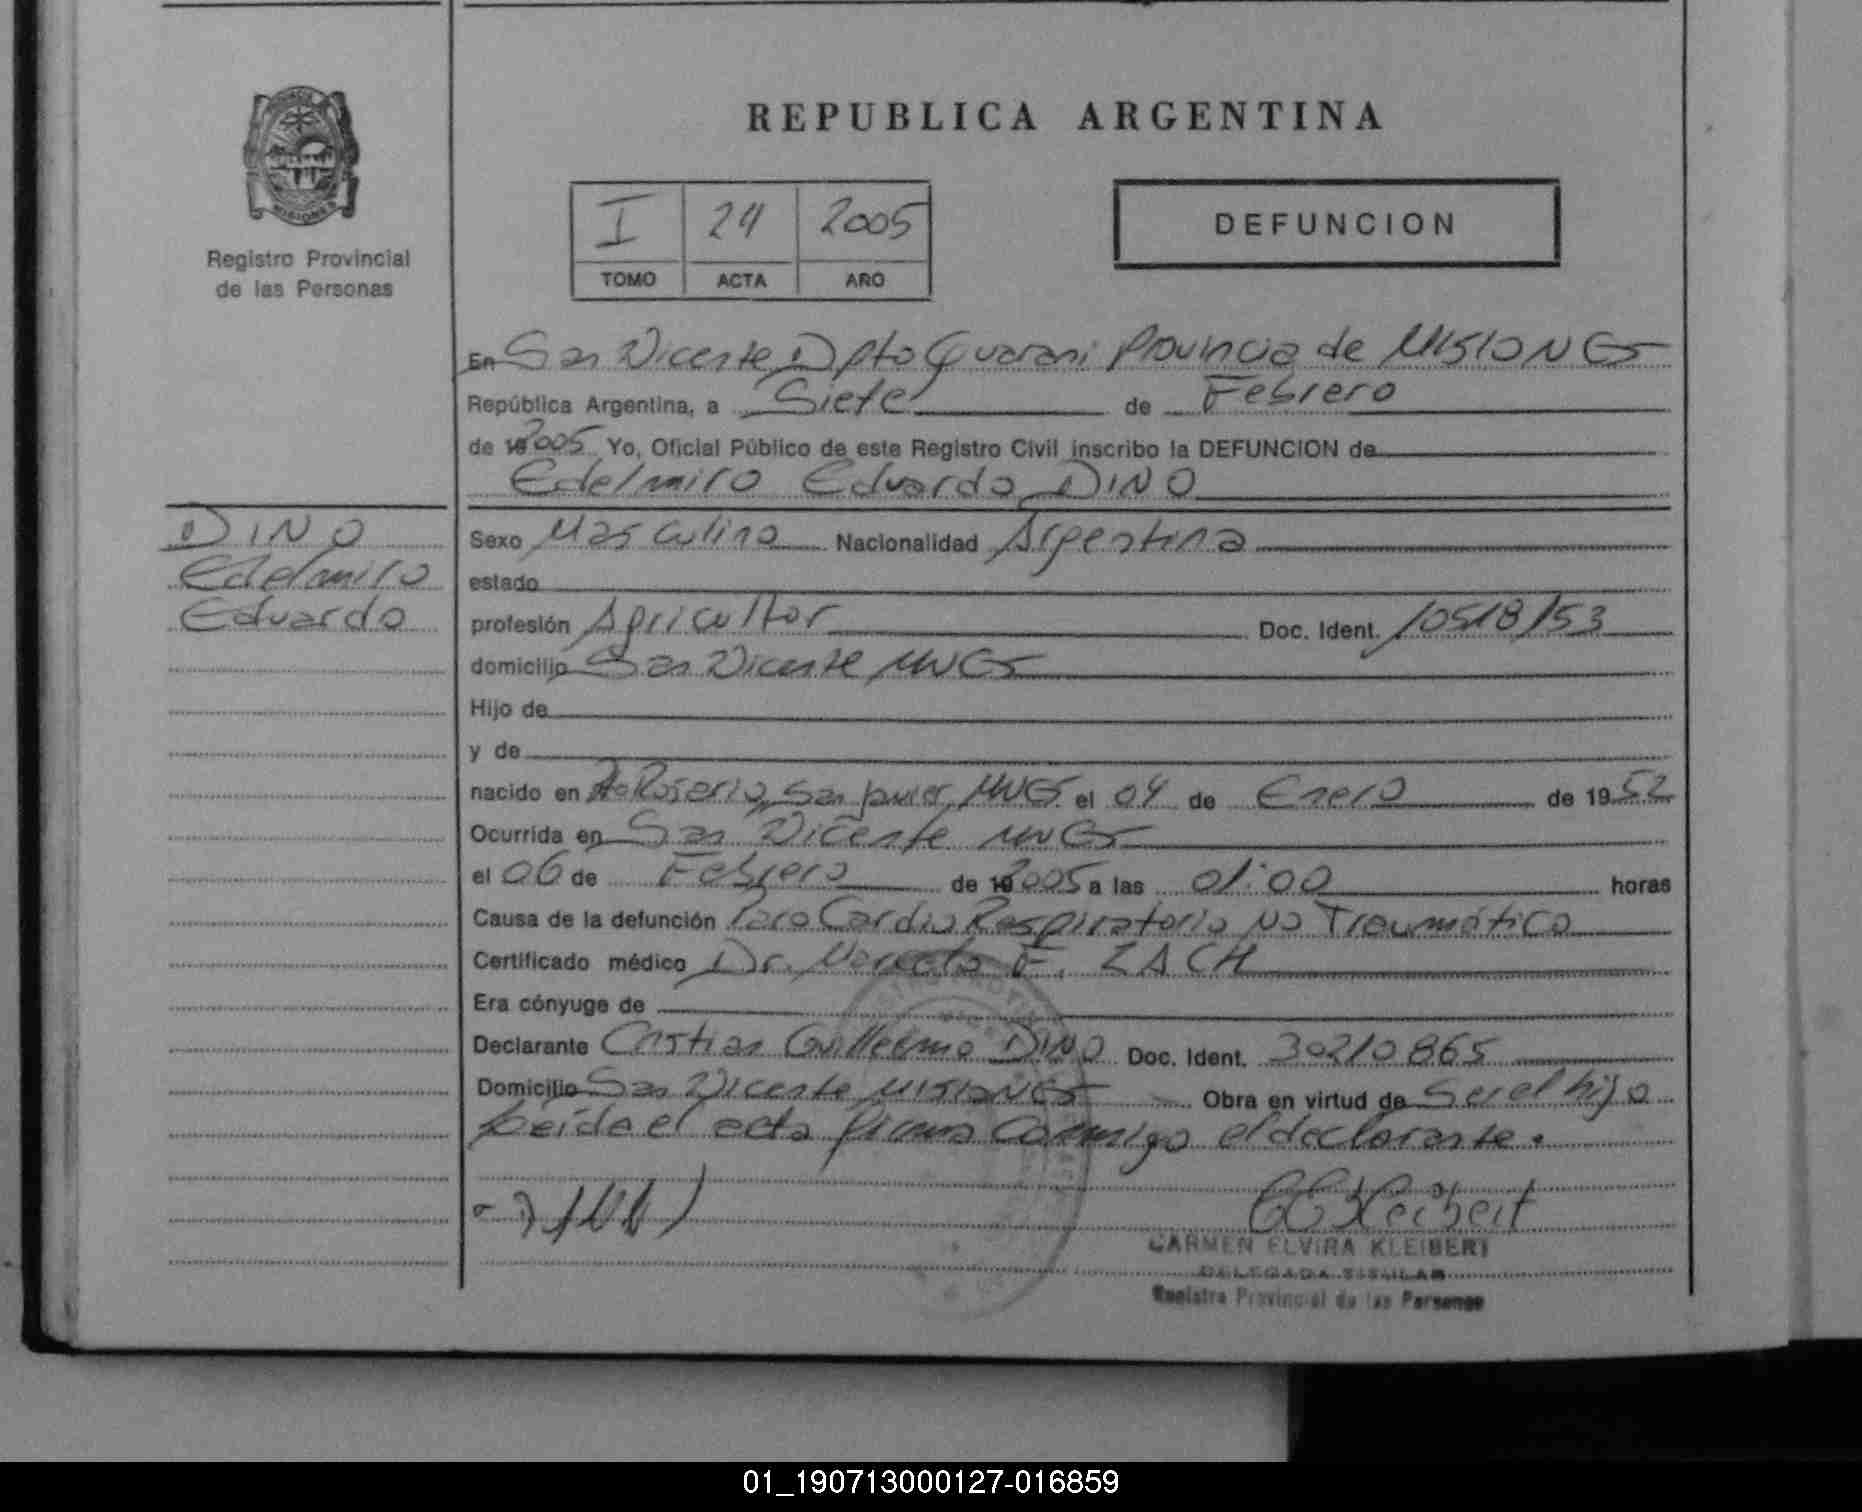 REPUBLICA ARGENTINA
MISIONES
Registro Provincial
de las Personas
I 24 2005
TOMO ACTA AÑO
DEFUNCION
En San Vicente Dpto Guarani Provincia de MISIONES
República Argentina, a Siete de Febrero
de 2005 Yo, Oficial Público de este Registro Civil inscribo la DEFUNCION de
Edelmiro Eduardo DINO
DINO
Edelmiro
Eduardo
Sexo Masculino Nacionalidad Argentina
estado
profesión Agricultor Doc. Ident. 10518153
domicilio San Vicente MNES
Hijo de
y de
nacido en Rosario, San Javier, MNES el 04 de Enero de 1952
Ocurrida en San Vicente MNES
el 06 de Febrero de 2005 a las 01:00 horas
Causa de la defunción Paro Cardio Respiratorio No Traumático
Certificado médico Dr. Marcelo E. ZACH
Era cónyuge de
Declarante Cristian Guillermo DINO Doc. Ident. 30210865
Domicilio San Vicente MISIONES Obra en virtud de Ser el hijo
Leida el acta firma Conmigo el declarante.
CEKleibert
CARMEN ELVIRA KLEIBERT
DELEGADA TITULAR
Registro Provincial de las Personas
01_190713000127-016859